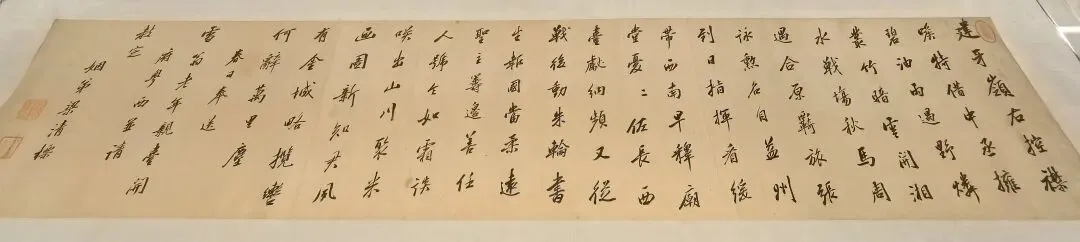 建牙嶺右控襟
喉特借中丞擁
碧油雨過野燐
叢竹暗雲開湘
水戰場秋馬周
遇合原羈旅張
詠勲名自益州
到日指揮看緩
帶西南早釋廟
堂憂二佐長西
臺獻納頻又從
戰後動朱輪書
生報國當柔遠
聖主籌邊善任
人號令如霜談
唉出山川聚米
画圖新知君夙
有金城略攬轡
何辭萬里塵
春日奉送
雪翁老年親臺開
府粤西並請
教定
姻弟梁清標